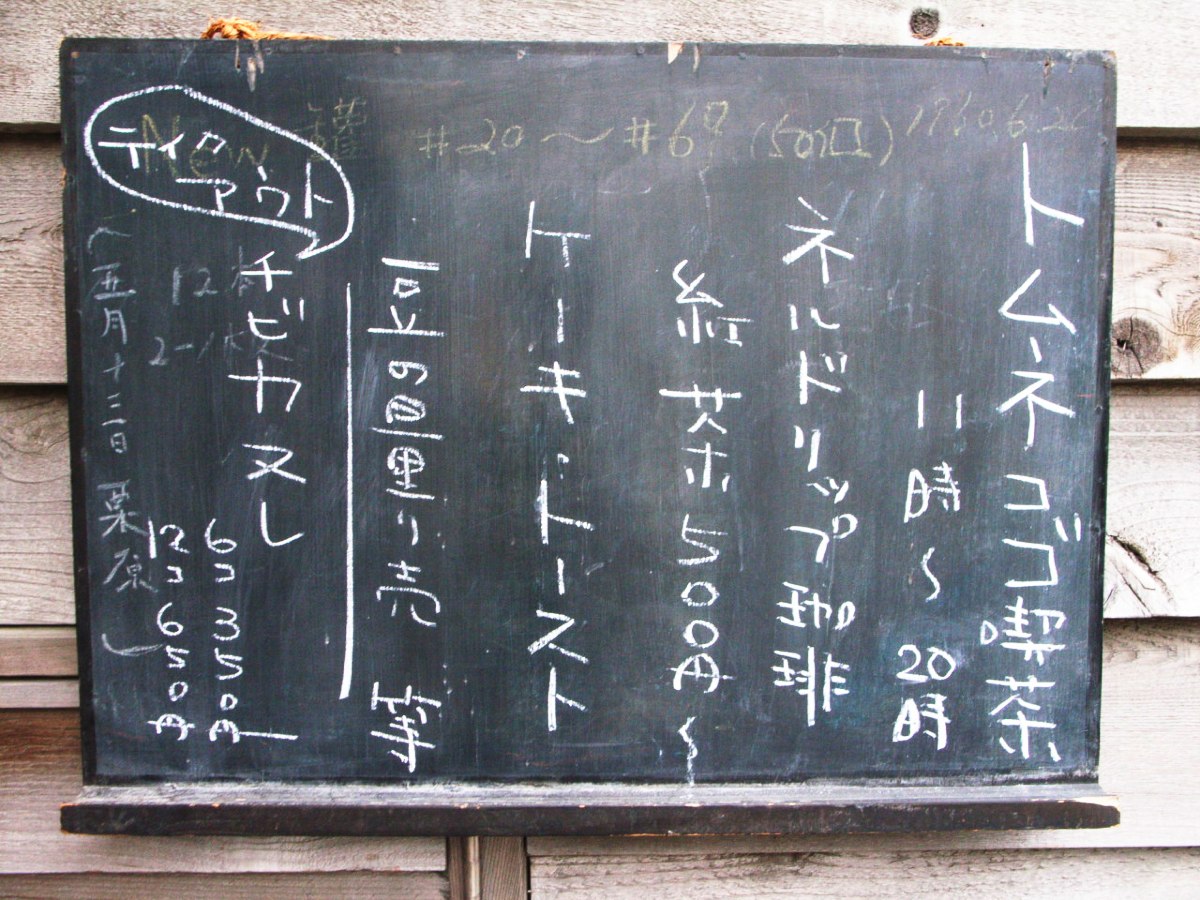 トムネコゴ喫茶
11時〜20時
ネルドリップ珈琲
紅茶500円〜
ケーキ・トースト
豆の量り売り等
テイクアウト
チビカヌレ
6コ350円
12コ650円
New 罐 #20〜#69 (50口)
12枚
五月十三日 栗原